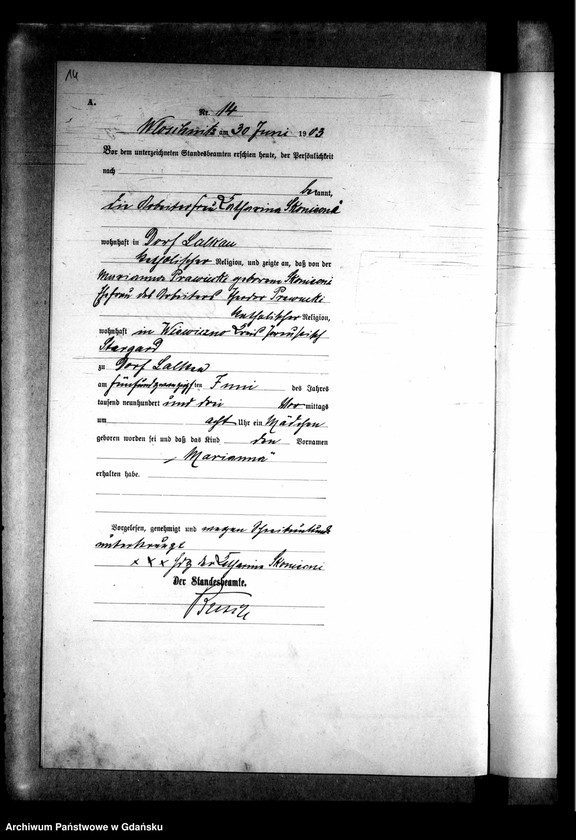 14
A.
Nr. 14
am 30 Juni 1903
Vor dem unterzeichneten Standesbeamten erschien heute, der Persönlichkeit
nach
bekannt,
die Arbeiterfrau Catharina
wohnhaft in Dorf Lalkau
katholischer Religion, und zeigte an, daß von der
Marianna geborenen
Ehefrau des Arbeiters Theodor
katholischer Religion,
wohnhaft in Kreis Preußisch
Stargard
zu Dorf Lalkau
am fünfundzwanzigsten Juni des Jahres
tausend neunhundert und drei Vormittags
um acht Uhr ein Mädchen
geboren worden sei und daß das Kind den Vornamen
„Marianna"
erhalten habe.
Vorgelesen, genehmigt und wegen
unterkreuzt
x x x der Catharina
Der Standesbeamte.
Archiwum Państwowe w Gdańsku